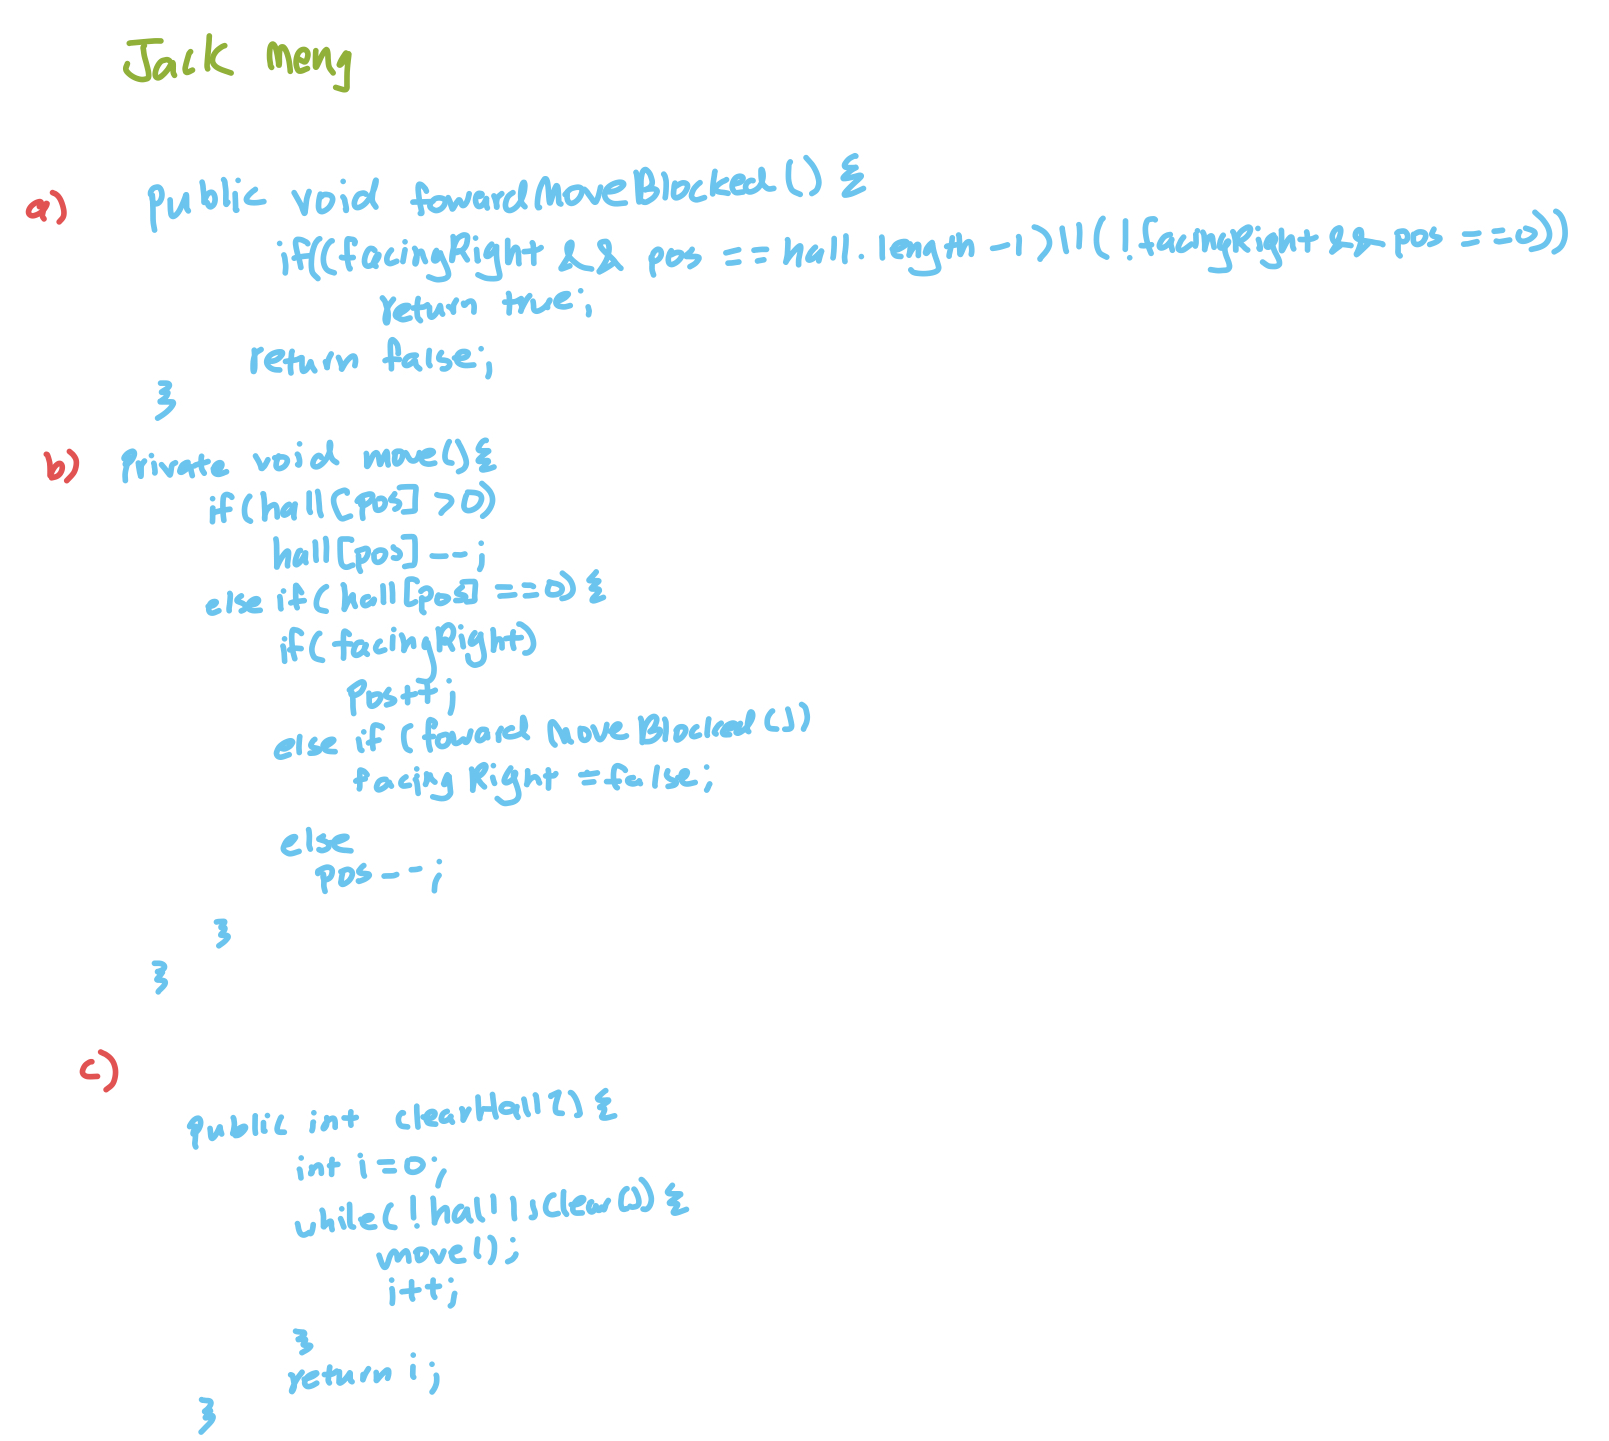 Jack meng
a) public void fowardMoveBlocked() {
if((facingRight && pos == hall.length -1)||(!facingRight && pos ==0))
return true;
return false;
}
b) Private void move(){
if(hall[pos] >0)
hall[pos]--;
else if(hall[pos] ==0) {
if(facingRight)
pos++;
else if (fowardMoveBlocked())
facingRight =false;
else
pos--;
}
}
c)
public int clearHall() {
int i=0;
while(!hallIsClear()) {
move();
i++;
}
return i;
}